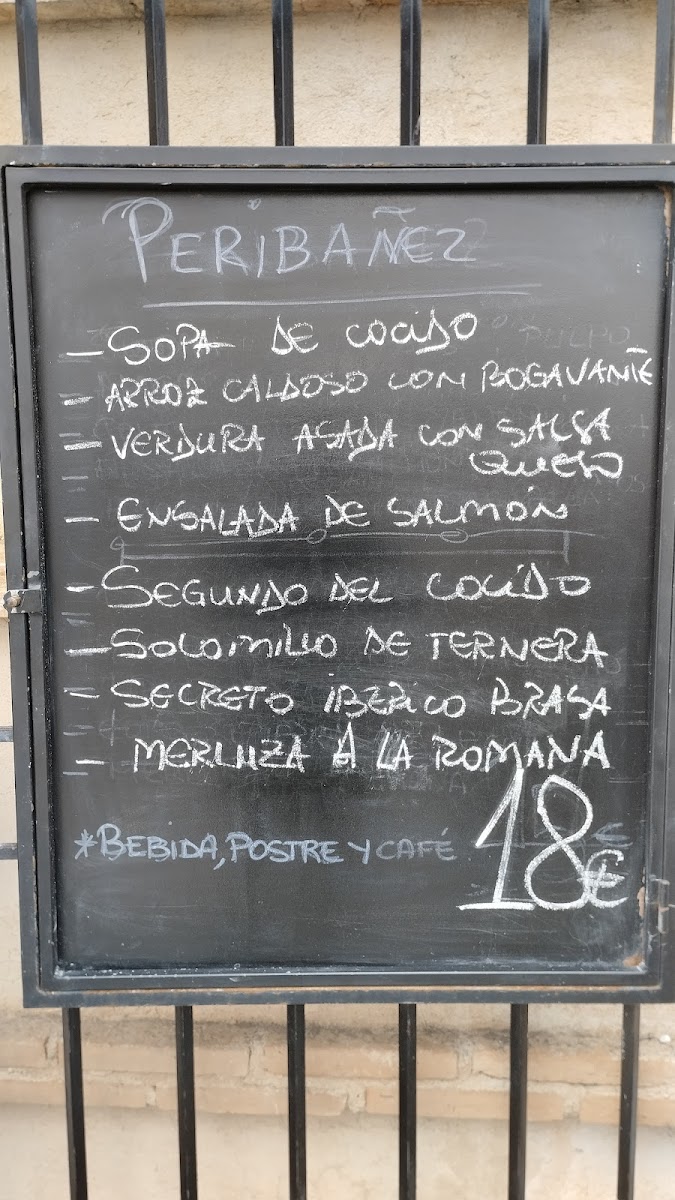 PERIBAÑEZ
- SOPA DE COCIDO
- ARROZ CALDOSO CON BOGAVANTE
- VERDURA ASADA CON SALSA
QUESO
- ENSALADA DE SALMÓN
- SEGUNDO DEL COCIDO
- SOLOMILLO DE TERNERA
- SECRETO IBERICO BRASA
- MERLUZA A LA ROMANA
*BEBIDA, POSTRE Y CAFÉ 18€